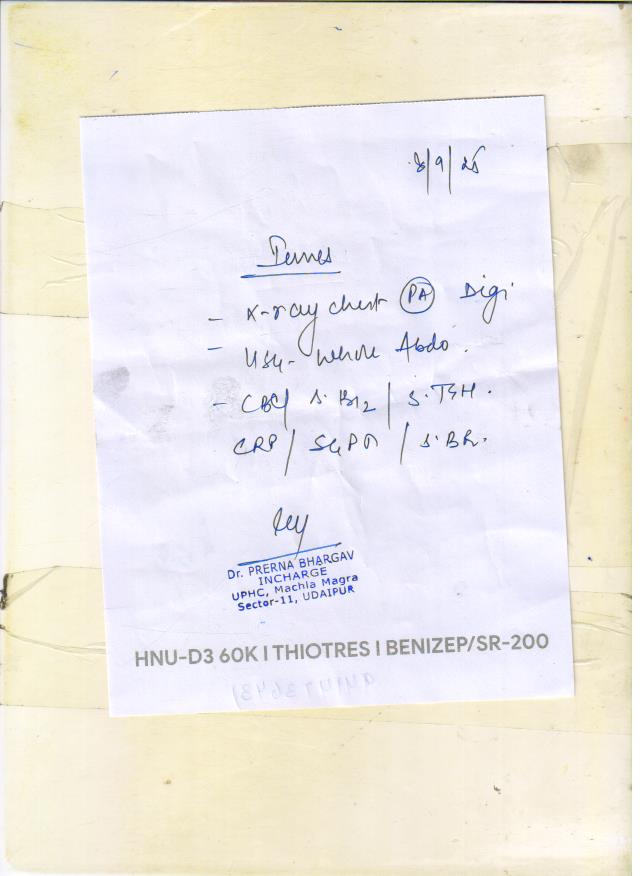 8/9/25
- X-ray chest (PA) Digi
- USG - Whole Abdo.
- CBC / S. B12 / S. TSH.
CRP / SGPT / S. BR.
Dr. PRERNA BHARGAV
INCHARGE
UPHC, Machla Magra
Sector-11, UDAIPUR
HNU-D3 60K I THIOTRES I BENIZEP/SR-200